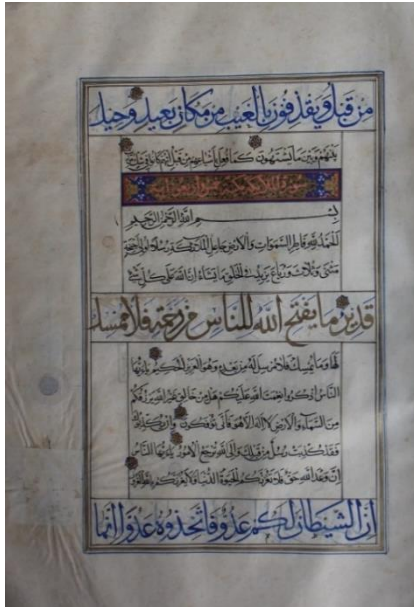 من قبل ويقذفون بالغيب من مكان بعيد وحيل
بينهم وبين ما يشتهون كما فعل بأشياعهم من قبل انهم كانوا في شك مريب
سورة الملائكة
بسم الله الرحمن الرحيم
الحمد لله فاطر السموات والارض جاعل الملائكة رسلا اولى اجنحة
مثنى وثلاث ورباع يزيد في الخلق ما يشاء ان الله على كل شئ
قدير ما يفتح الله للناس من رحمة فلا ممسك
لها وما يمسك فلا مرسل له من بعده وهو العزيز الحكيم يا ايها
الناس اذكروا نعمت الله عليكم هل من خالق غير الله يرزقكم
من السماء والارض لا اله الا هو فانى تؤفكون وان يكذبوك
فقد كذبت رسل من قبلك والى الله ترجع الامور يا ايها الناس
ان وعد الله حق فلا تغرنكم الحيوة الدنيا ولا يغرنكم بالله الغرور
ان الشيطان لكم عدو فاتخذوه عدوا انما